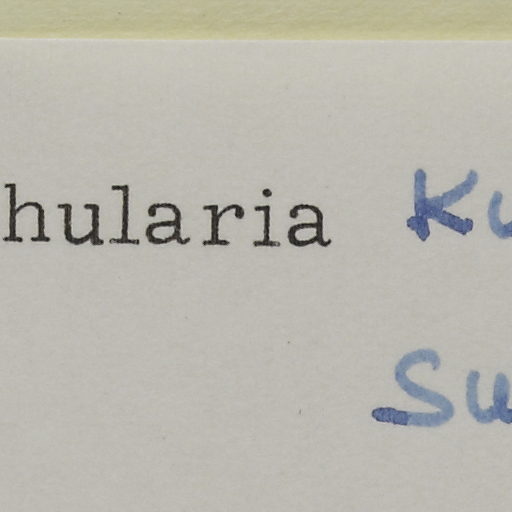 hularia Ku
Su